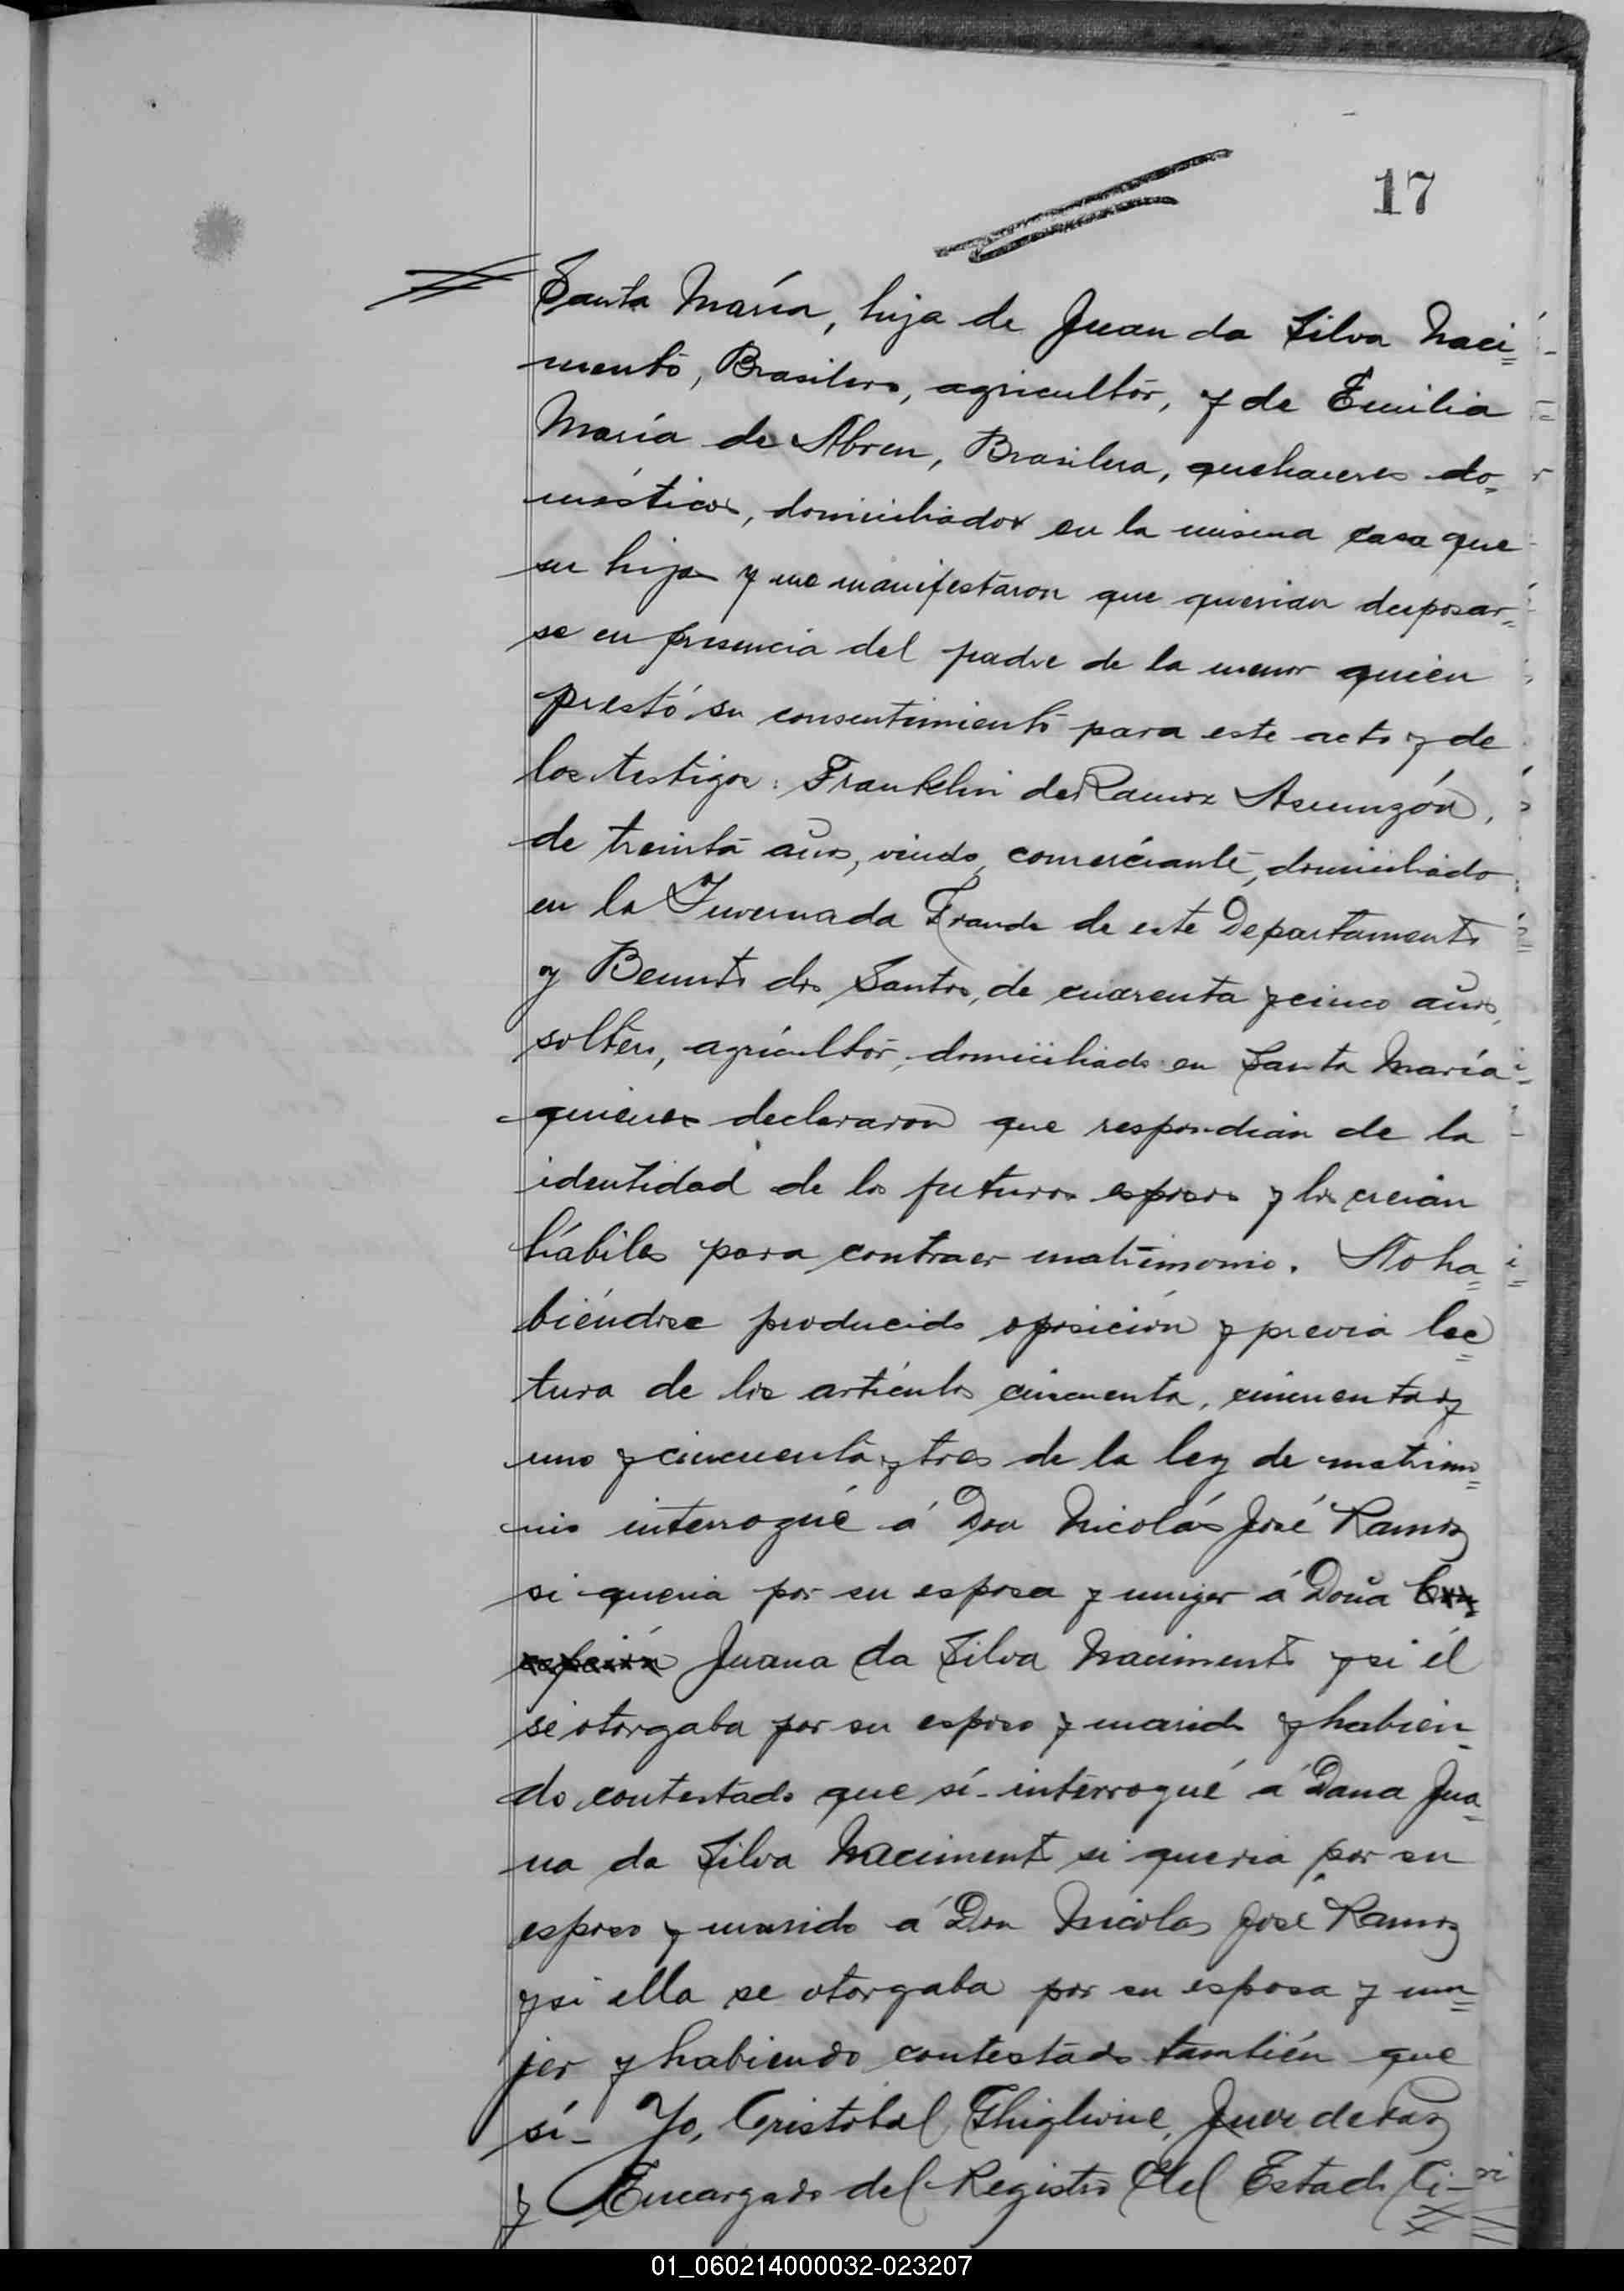 17
Santa María, hija de Juan da Silva Naci=
mento, Brasilero, agricultor, y de Emilia
María de Abreu, Brasilera, quehaceres do=
mésticos, domiciliados en la misma casa que
su hija y me manifestaron que querian desposar=
se en presencia del padre de la menor quien
prestó su consentimiento para este acto y de
los testigos: Franklin de Ramos Asunzón,
de treinta años, viudo, comerciante, domiciliado
en la Invernada Grande de este Departamento
y Benito dos Santos, de cuarenta y cinco años,
soltero, agricultor, domiciliado en Santa María
quienes declararon que respondian de la
identidad de los futuros esposos y los creian
hábiles para contraer matrimonio. No ha=
biéndose producido oposición y previa lec=
tura de los artículos cincuenta, cincuenta y
uno y cincuenta y tres de la ley de matrimo=
nio interrogué á Don Nicolás José Ramos
si queria por su esposa y muger á Doña
Juana da Silva Nacimento y si él
se otorgaba por su esposo y marido y habien=
do contestado que sí - interrogué á Dana Jua=
na da Silva Nacimento si queria por su
esposo y marido á Don Nicolas José Ramos
y si ella se otorgaba por su esposa y mu=
jer y habiendo contestado también que
sí - Yo, Cristobal Ghiglione, Juez de Paz
y Encargado del Registro del Estado Ci-
01_060214000032-023207